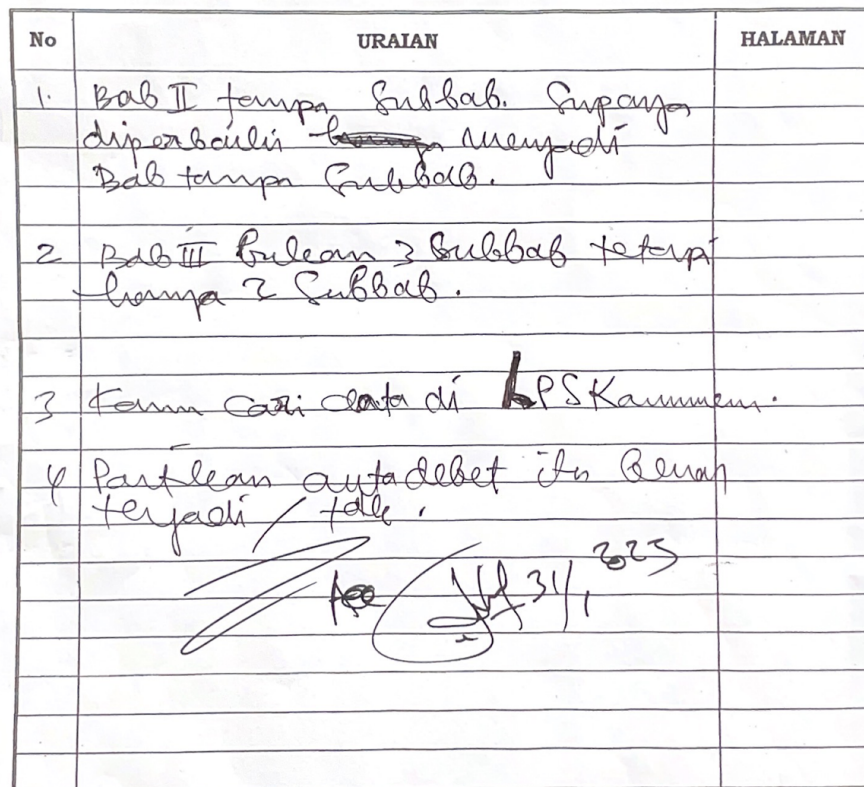 No URAIAN HALAMAN
1. Bab II tanpa Subbab. Supaya
diperbaiki menjadi
Bab tanpa Subbab.
2 Bab III bukan 3 Subbab tetapi
hanya 2 Subbab.
3 Kamu cari data di LPSK
4 Pastikan autodebet itu benar
terjadi / tdk.
Acc 31/1 2025